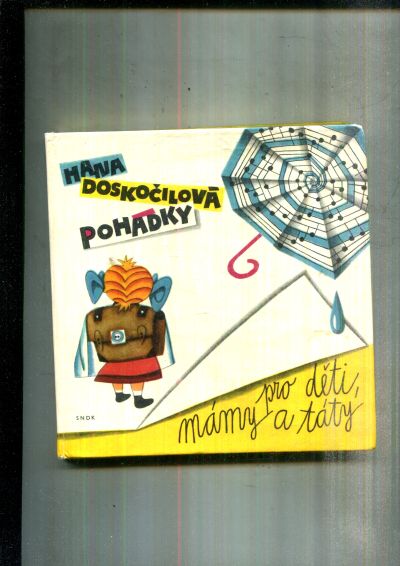 HANA
DOSKOČILOVÁ
POHÁDKY
SNDK
pro děti,
mámy a táty